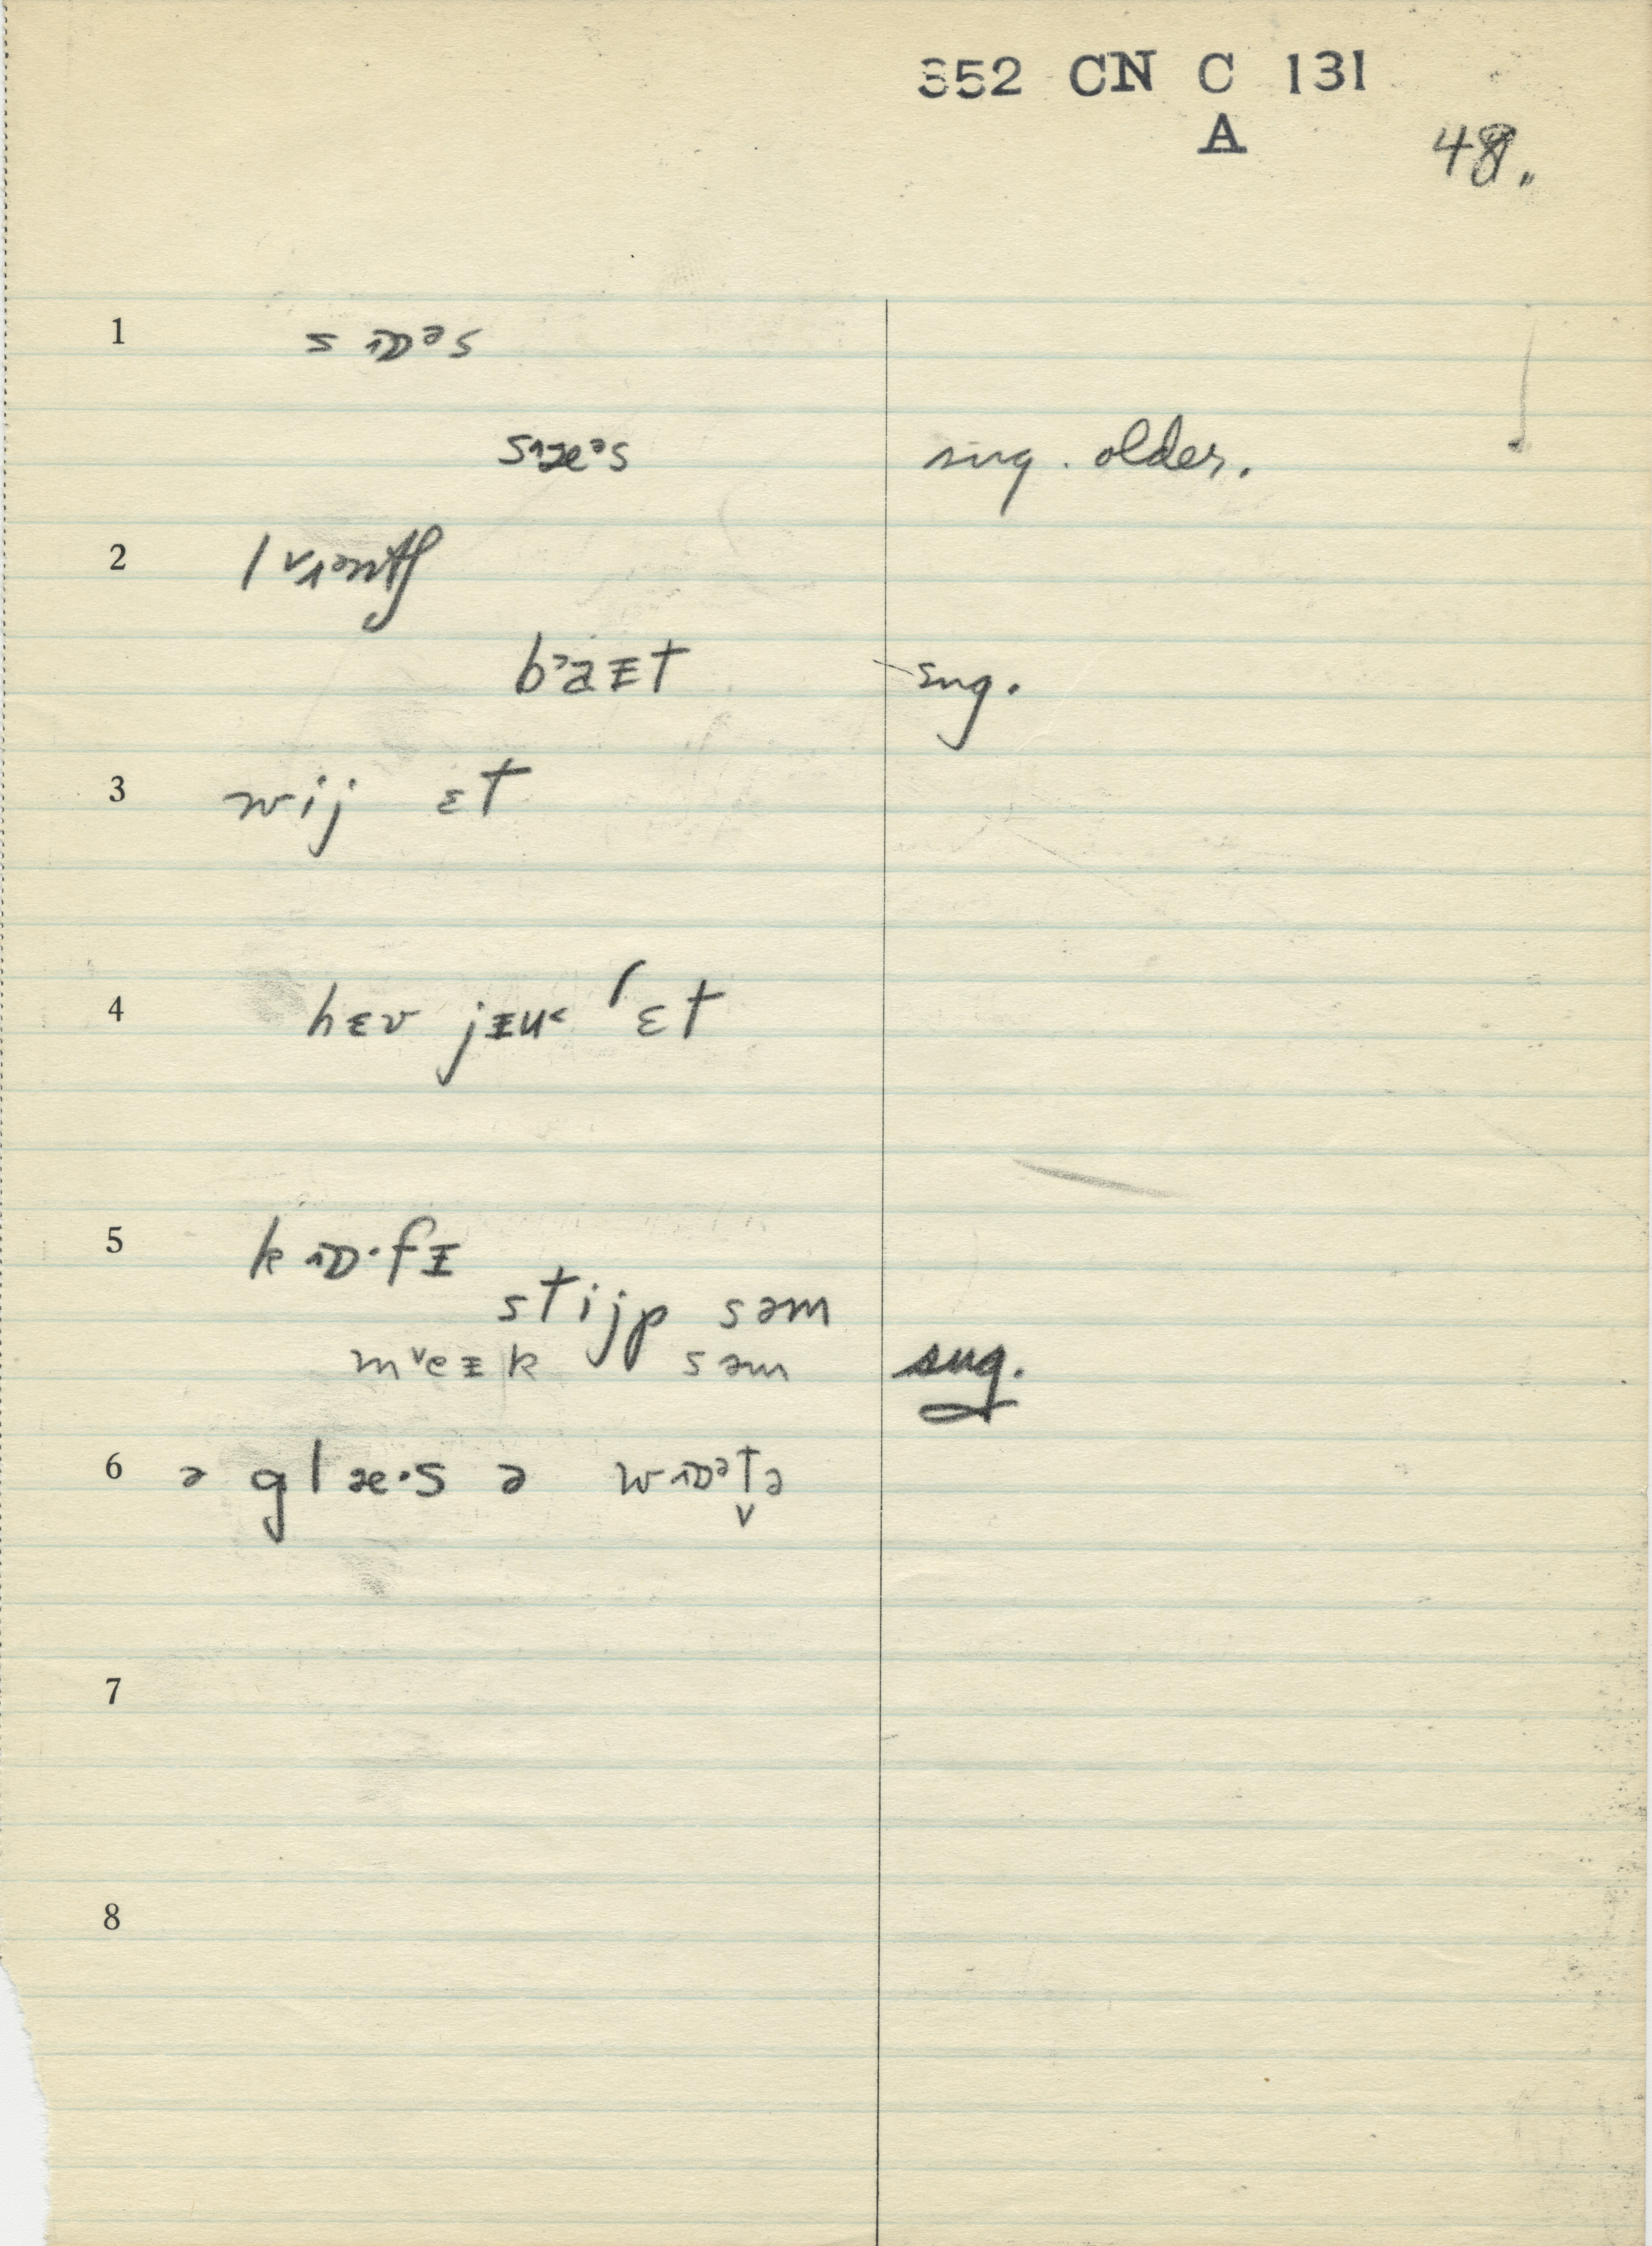 352 CN C 131
A
48.
1 s ɒᵊs
sæᵊs sug. older.
2
bᵊaɪt sug.
3 wij ɛt
4 hɛv jɪu˂ ɛt
5 k ɒ·fɪ
stijp səm
mᵛeɪk səm sug.
6 ə glæ·s ə wɒᵊt̬ə
7
8